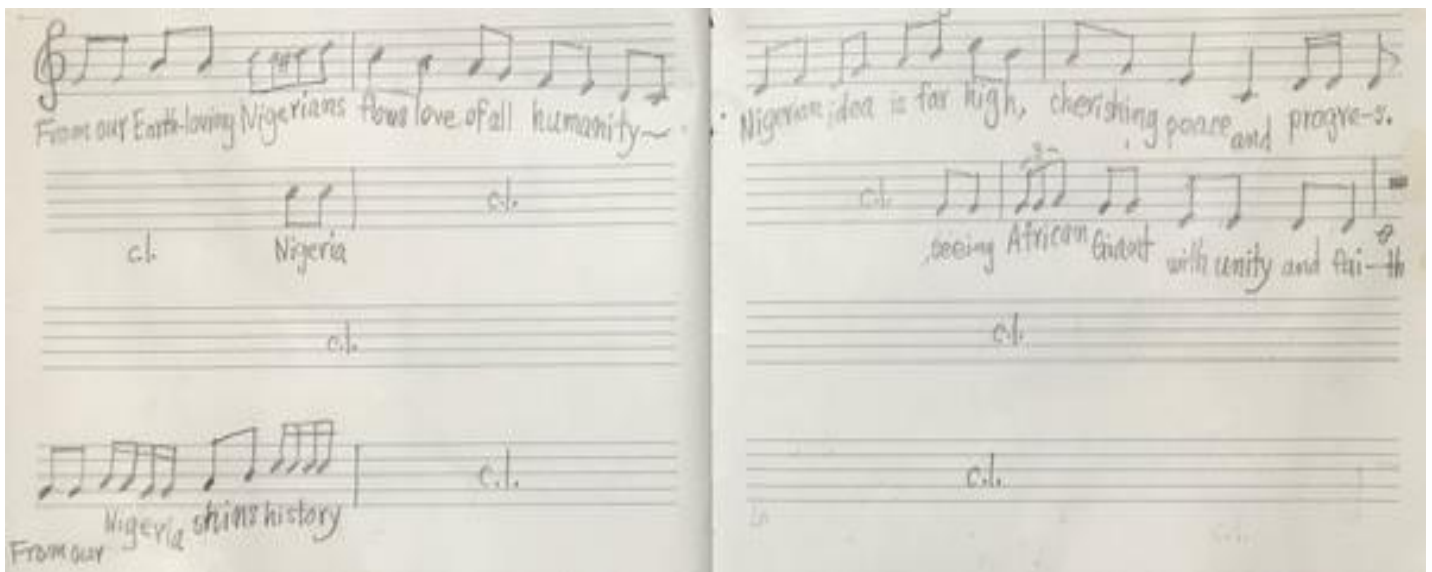 From our Earth-loving Nigerians flows love of all humanity~
c.l. Nigeria c.l.
c.l.
Nigeria shins history c.l.
From our
Nigerian idea is far high, cherishing peace and progre-s.
c.l. 3 ,seeing African Giant with unity and fai-th
c.l.
c.l.